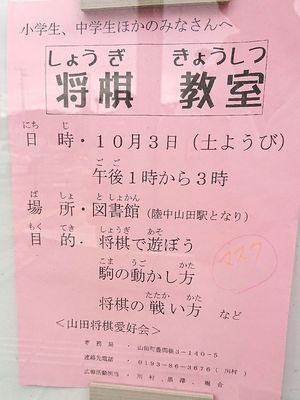 小学生、中学生ほかのみなさんへ
しょうぎ きょうしつ
将棋 教室
にち じ
日 時・10月3日(土ようび)
ごご
午後1時から3時
ば しょ としょかん
場 所・図書館(陸中山田駅となり)
もく てき しょうぎ あそ
目 的・将棋で遊ぼう
こま うご かた
駒の動かし方
たたか かた
将棋の戦い方 など
マスク
<山田将棋愛好会>
事務局・山田町豊間根3-140-5
連絡先電話・0193-86-3676(川村)
広報活動担当・川村、黒澤、